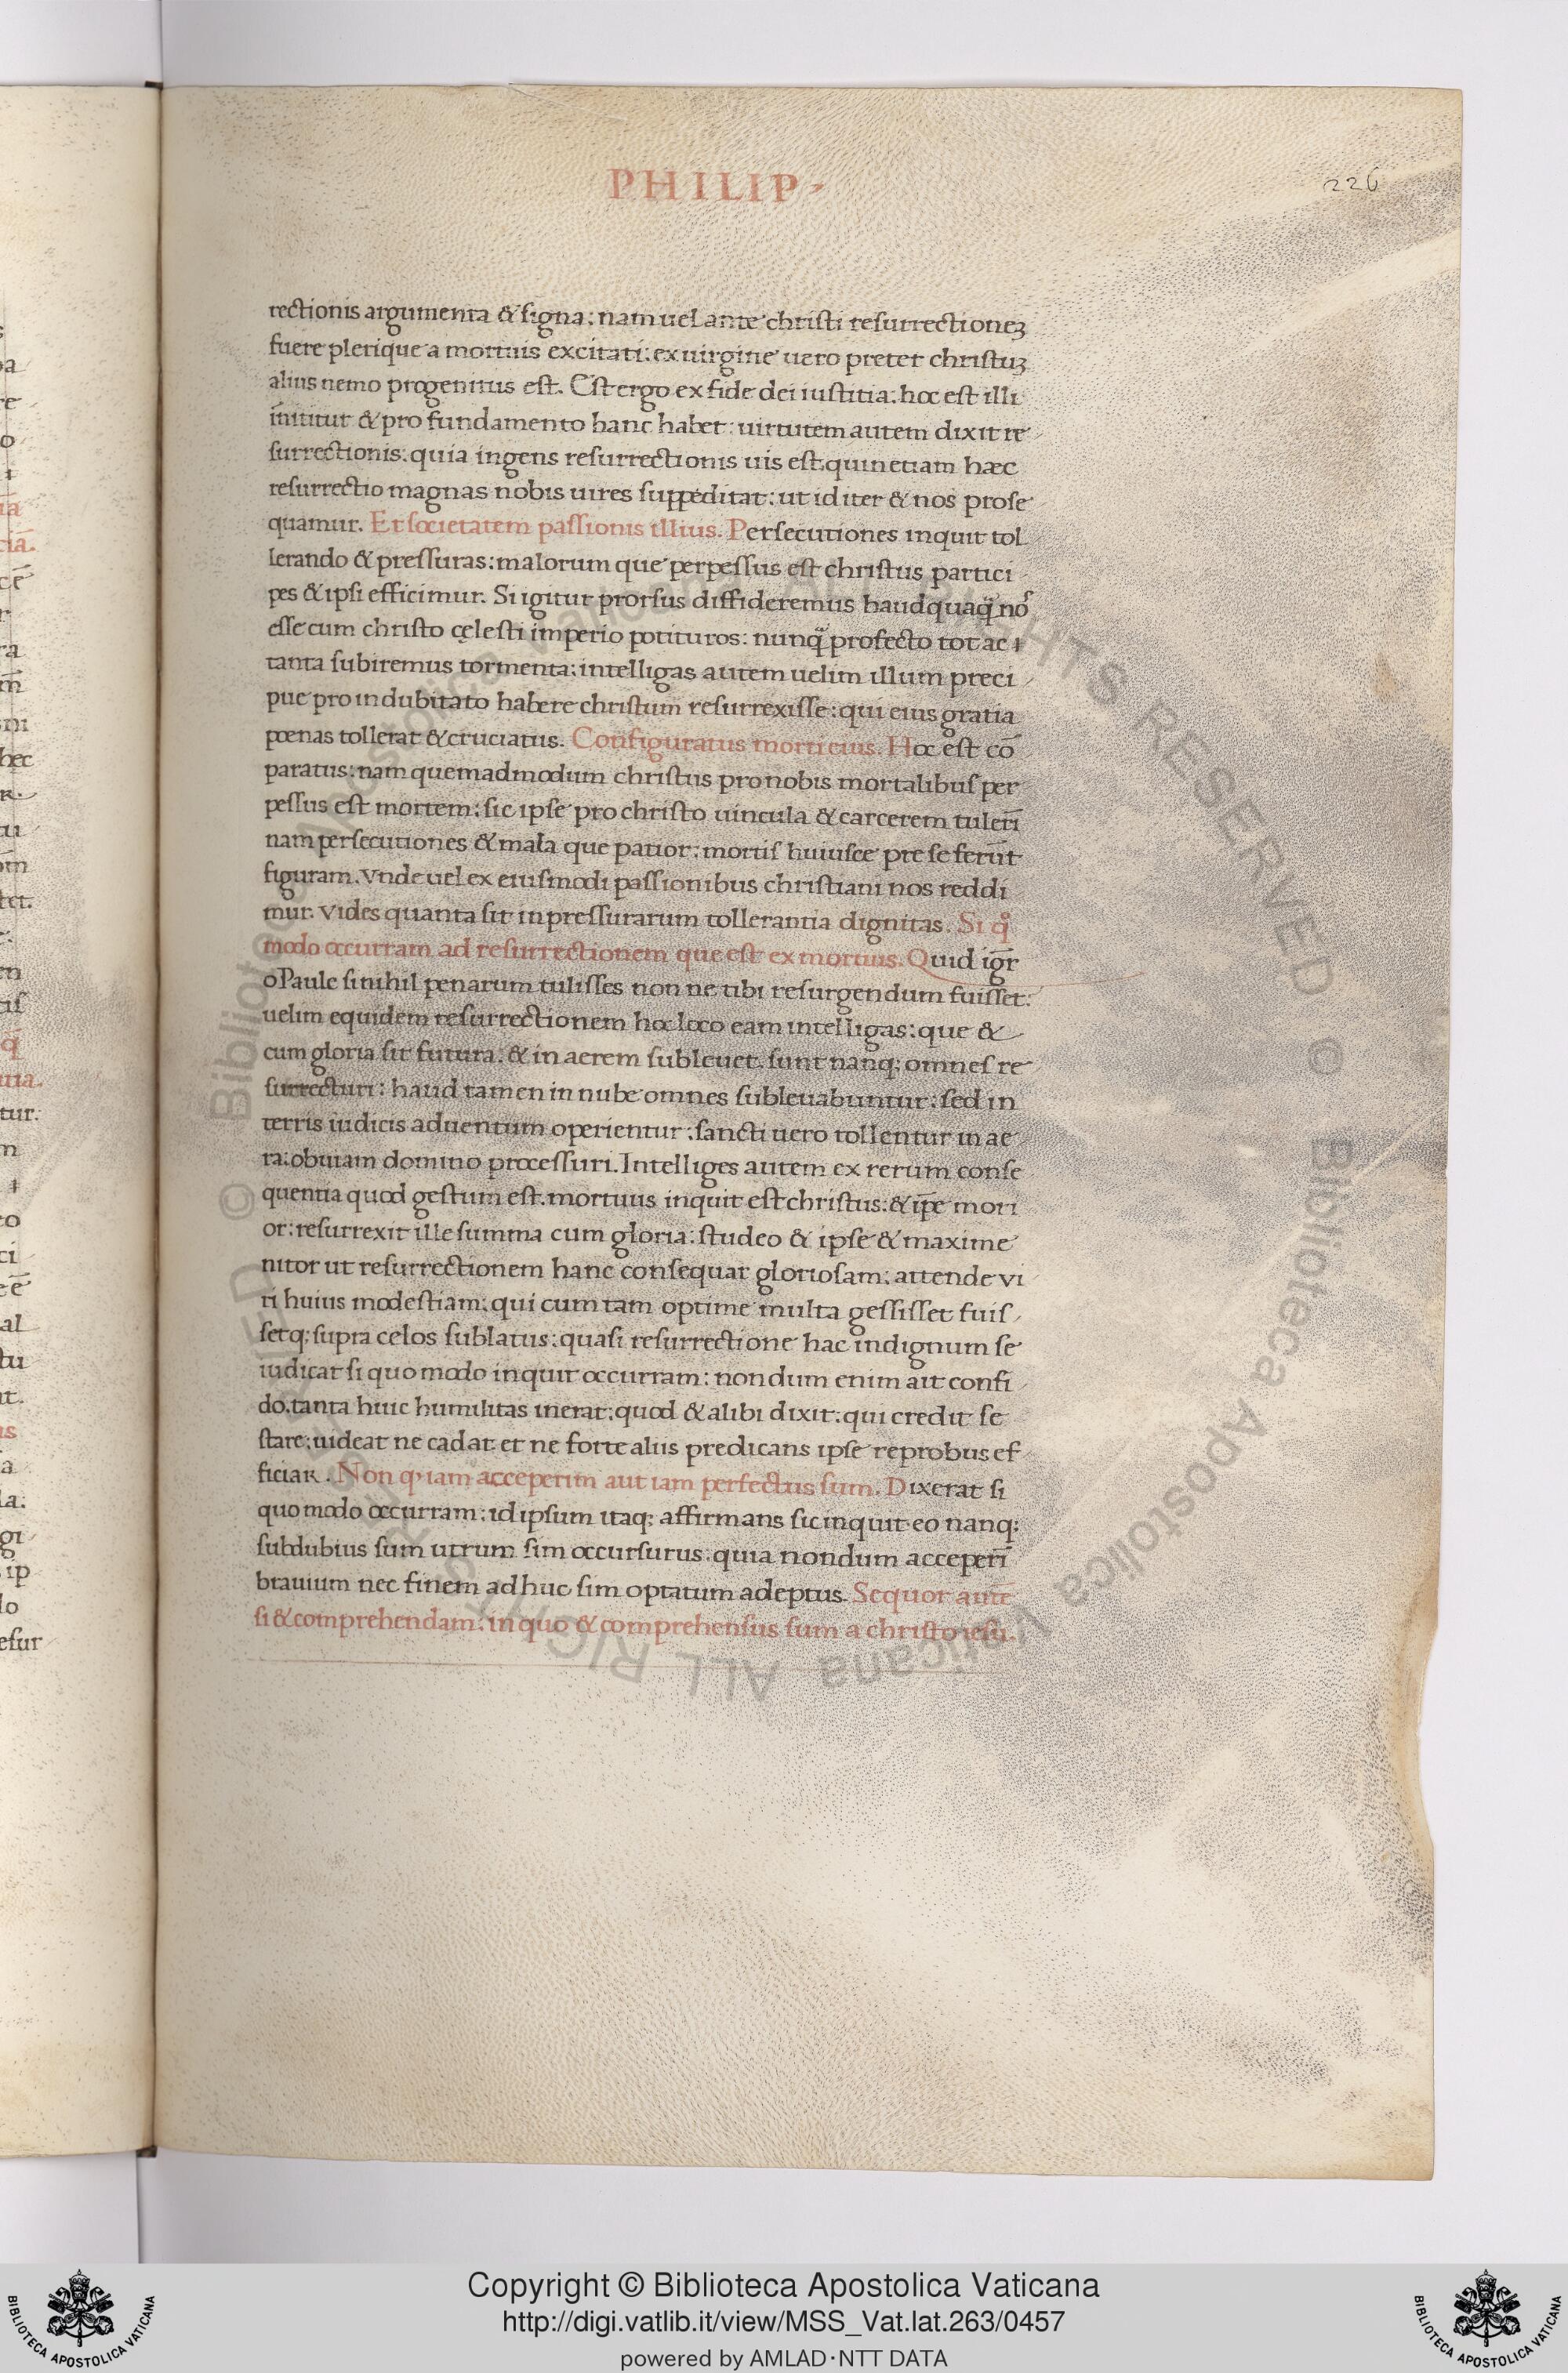 PHILIP
226
rectionis argumenta & signa: nam uel ante christi resurrectioneꝫ
fuere plerique a mortuis excitati: ex uirgine uero preter christuꝫ
alius nemo progenitus est. Est ergo ex fide dei iustitia: hoc est illi
inititur & pro fundamento hanc habet: uirtutem autem dixit re
surrectionis: quia ingens resurrectionis uis est. quinetiam hæc
resurrectio magnas nobis uires suppeditat: ut id iter & nos prose
quamur. Et societatem passionis illius. Persecutiones inquit tol
lerando & pressuras: malorum que perpessus est christus partici
pes & ipsi efficimur. Si igitur prorsus diffideremus haudquaq̃ nos
esse cum christo cęlesti imperio potituros: nunq̃ profecto tot ac
tanta subiremus tormenta: intelligas autem uelim illum preci
pue pro indubitato habere christum resurrexisse: qui eius gratia
poenas tollerat & cruciatus. Configuratus morti eius. Hoc est cō
paratus: nam quemadmodum christus pro nobis mortalibus per
pessus est mortem: sic ipse pro christo uincula & carcerem tulerī
nam persecutiones & mala que patior: mortis huiusce pre se ferūt
figuram. Vnde uel ex eiusmodi passionibus christiani nos reddi
mur. Vides quanta sit in pressurarum tollerantia dignitas. Si qͦ
modo occurram ad resurrectionem que est ex mortuis. Quid igr̄
o Paule si nihil penarum tulisses non ne tibi resurgendum fuisset:
uelim equidem resurrectionem hoc loco eam intelligas: que &
cum gloria sit futura. & in aerem subleuet. sunt nanq; omnes re
surrecturi: haud tamen in nube omnes subleuabuntur: sed in
terris iudicis aduentum operientur: sancti uero tollentur in ae
ra: obuiam domino processuri. Intelliges autem ex rerum conse
quentia quod gestum est. mortuus inquit est christus: & ip̄e mori
or: resurrexit ille summa cum gloria: studeo & ipse & maxime
nitor ut resurrectionem hanc consequar gloriosam: attende vi
ri huius modestiam: qui cum tam optime multa gessisset fuis
setq; supra celos sublatus: quasi resurrectione hac indignum se
iudicat si quo modo inquit occurram: nondum enim ait confi
do. tanta huic humilitas inerat: quod & alibi dixit: qui credit se
stare: uideat ne cadat. et ne forte aliis predicans ipse reprobus ef
ficiar. Non qͥ iam acceperim aut iam perfectus sum. Dixerat si
quo modo occurram: id ipsum itaq; affirmans sic inquit eo nanq;
subdubius sum utrum sim occursurus. quia nondum acceperī
brauium nec finem adhuc sim optatum adeptus. Sequor autē
si & comprehendam: in quo & comprehensus sum a christo iesu.
© Biblioteca Apostolica Vaticana ALL RIGHTS RESERVED © Biblioteca Apostolica Vaticana ALL RIGHTS RESERVED
Copyright © Biblioteca Apostolica Vaticana
http://digi.vatlib.it/view/MSS_Vat.lat.263/0457
powered by AMLAD·NTT DATA
BIBLIOTECA APOSTOLICA VATICANA
BIBLIOTECA APOSTOLICA VATICANA